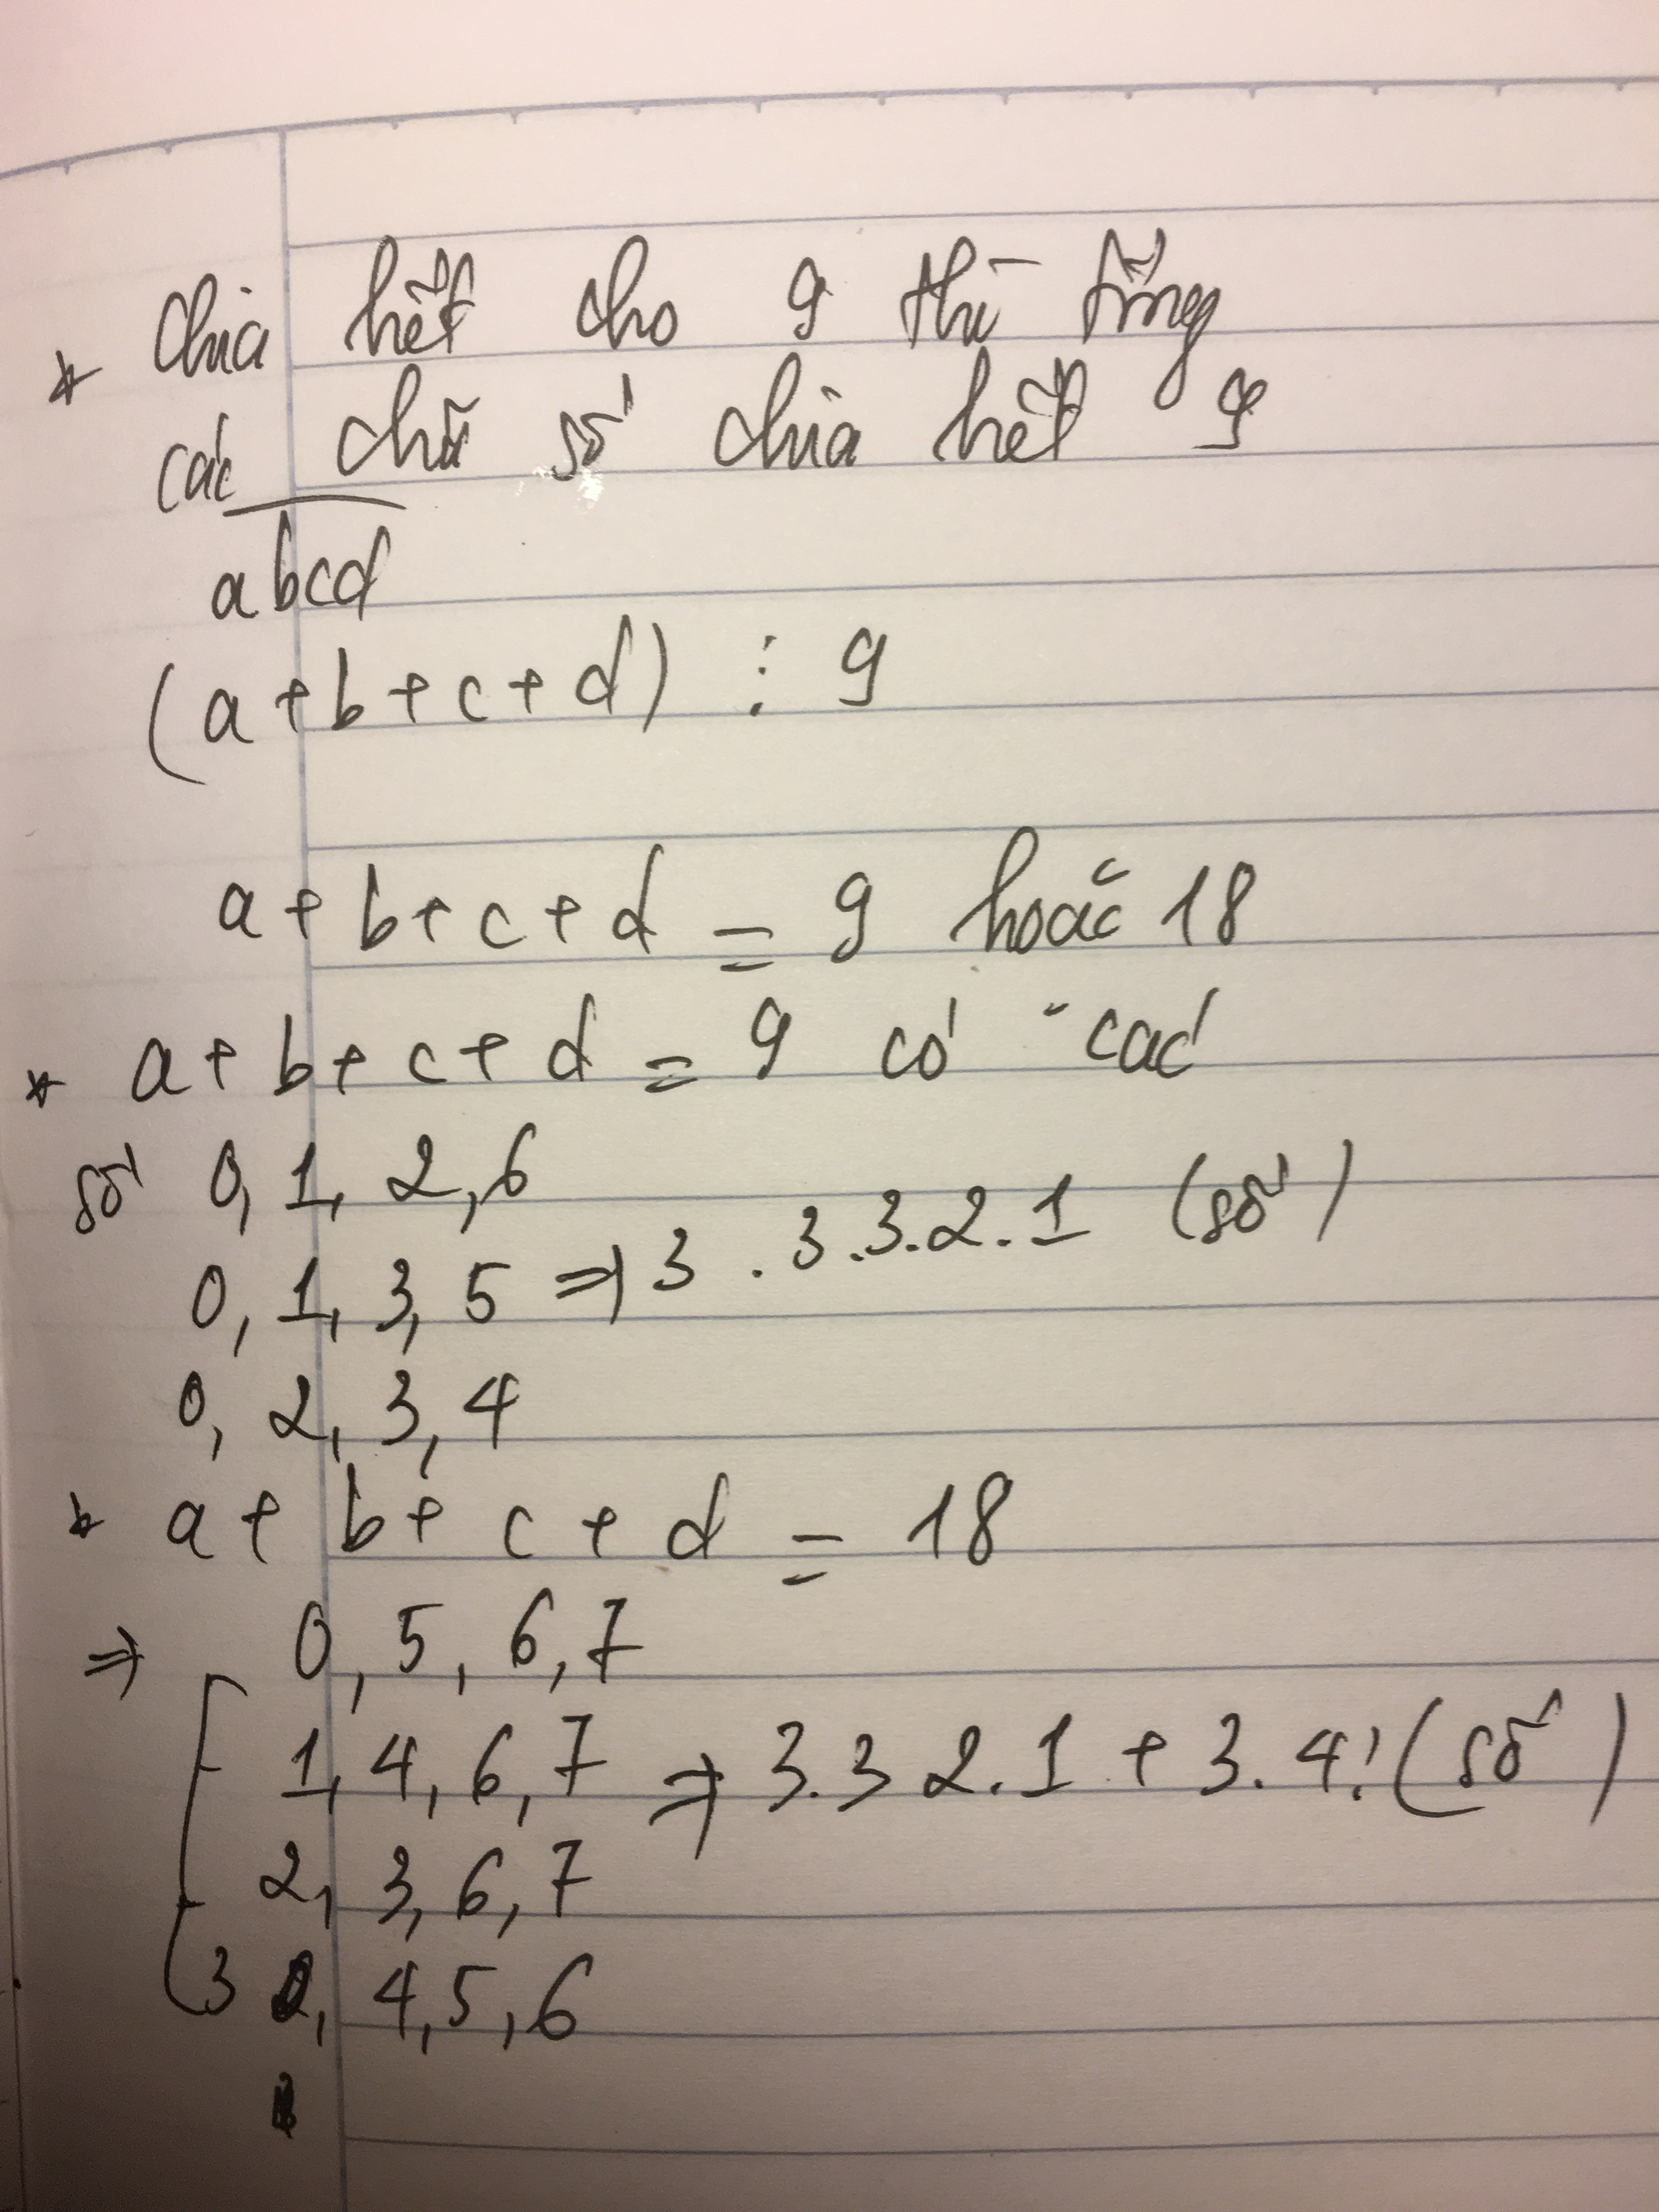 * Chia hết cho 9 thì tổng
các chữ số chia hết 9
abcd
(a+b+c+d) ⋮ 9
a+b+c+d = 9 hoặc 18
* a+b+c+d = 9 có các
số 0, 1, 2, 6
0, 1, 3, 5 => 3 . 3.3.2.1 (số)
0, 2, 3, 4
* a + b + c + d = 18
=> 0, 5, 6, 7
1, 4, 6, 7 => 3.3 2.1 + 3.4! (số)
2, 3, 6, 7
3, 4, 5, 6